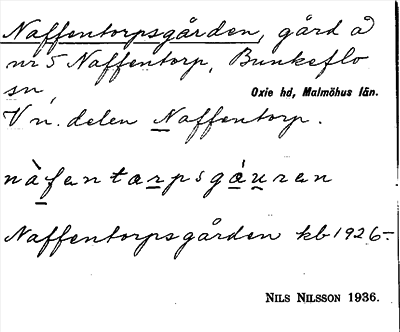 Naffentorpsgården, gård å
nr 5 Naffentorp, Bunkeflo
sn,
Oxie hd, Malmöhus län.
V n. delen Naffentorp.
nàfentærpsgáuren
Naffentorpsgården kb 1926-.
NILS NILSSON 1936.